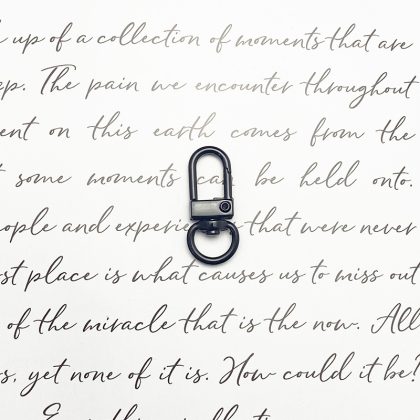 up of a collection of moments that are
The pain we encounter throughout
on this earth comes from the
some moments can be held onto.
and experie that were never
place is what causes us to miss out
of the miracle that is the now. All
yet none of it is. How could it be?